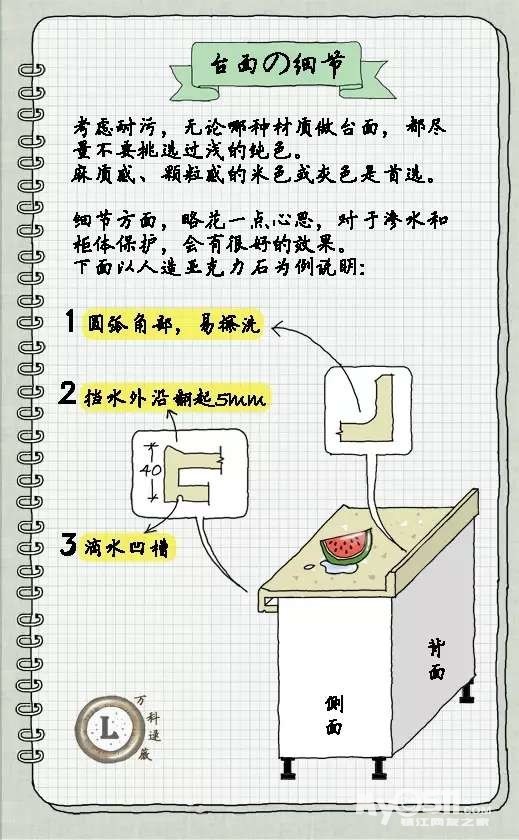 台面の细节
考虑耐污，无论哪种材质做台面，都尽
量不要挑选过浅的纯色。
麻质感、颗粒感的米色或灰色是首选。
细节方面，略花一点心思，对于渗水和
柜体保护，会有很好的效果。
下面以人造亚克力石为例说明：
1 圆弧角部，易擦洗
2 挡水外沿翻起5mm
40
3 滴水凹槽
背面
侧面
L
万科速